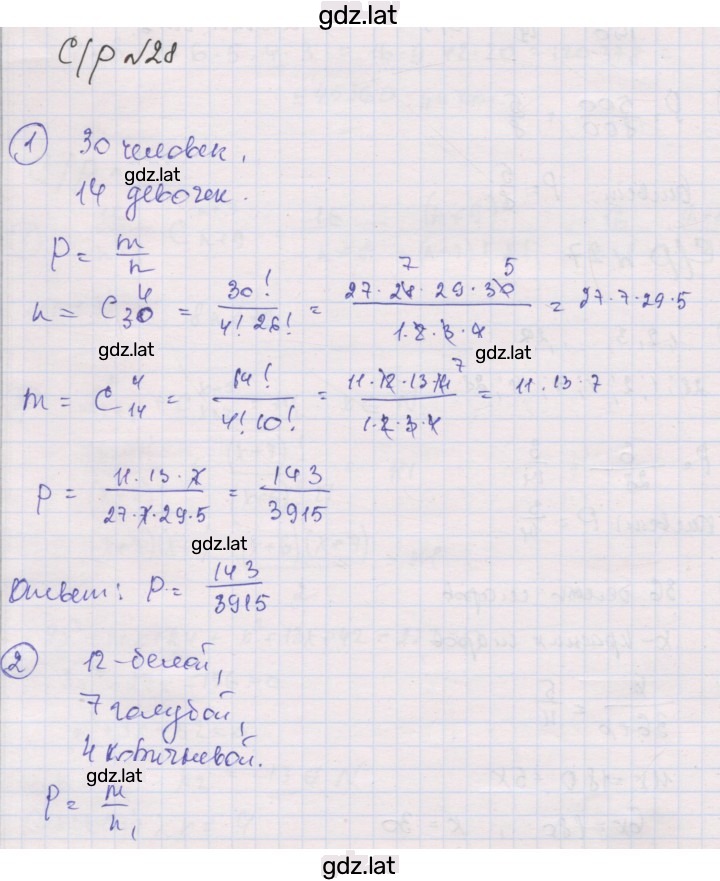 gdz.lat
С/р №28
1 30 человек,
gdz.lat
14 девочек.
P = m/n
n = C₃₀⁴ = 30!/(4! 26!) = (27·28·29·30)/(1·2·3·4) = 27·7·29·5
7 5
gdz.lat gdz.lat
m = C₁₄⁴ = 14!/(4! 10!) = (11·12·13·14)/(1·2·3·4) = 11·13·7
7
P = (11·13·7)/(27·7·29·5) = 143/3915
gdz.lat
Ответ: P = 143/3915
2 12 - белой,
7 голубой,
4 коричневой.
gdz.lat
P = m/n,
gdz.lat